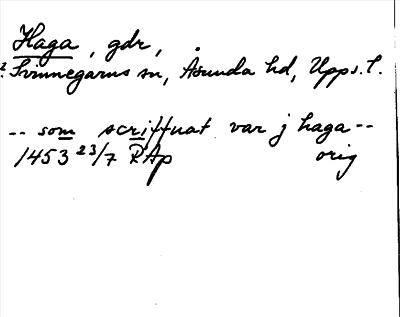 Haga, gdr,
? Svinnegarns sn, Åsunda hd, Upps. l.
-- som scriffuat var j haga --
1453 23/7 RAp orig